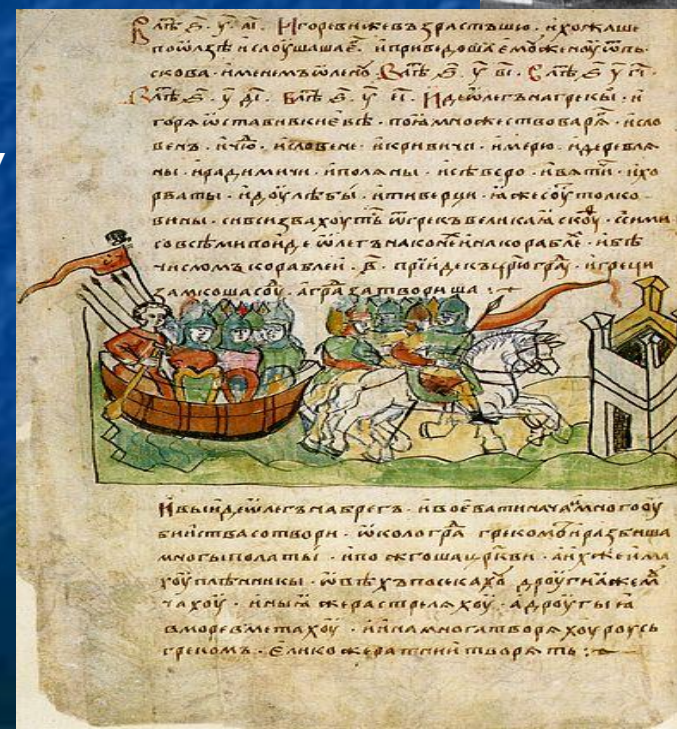 В лѣ҃т ҂ѕ҃. у҃. аі҃. Игоревижевъзрастъшю. ихожаше
поѡлзѣ ислоушашаеⷢ. иприведошаеможеноуѿпь
скова. именемъѡленоу Влѣ҃т ҂ѕ҃. у҃ ві҃. Влѣ҃т ҂ѕ҃ у҃ гі҃.
Влѣ҃т ҂ѕ҃. у҃ ді҃. Влѣ҃т ҂ѕ҃. у҃ еі҃. Идеѡлегънагрекы. и
горяѡставивкиевѣ. поямножествоваряⷢ. исло
венъ. ичюⷣ. исловене. икривичи. имерю. идеревля
ны. ирадимичи. иполяны. исѣверо. ивятиⷱ. ихо
рваты. идоулѣбы. итиверци. яжесоутолко
вины. сивсизвахоуть ѿгрекъвеликаяскоуⷴ. ссими
совсѣмипоиде ѡлегънаконеинакораблеⷯ. ибѣ
числомъкораблеи. в҃. приидекъцрюграⷣ. игреци
замкошасоуⷣ. аграⷣзатвориша
Ивыидеѡлегънабрегъ. ивоеватинача. имногооу
бииствасотвори. ѡколограⷣ грекомⷨ. иразбиша
многыполаты. ипожгошацркви. аихжеима
хоуплѣнникы. ѡвѣхъпосекахоⷹ. дроугияжемꙋ
чахоу. иныяжерастреляхоу. адроугыя
вморевметахоу. иинамногатворяхоуроусь
грекомъ. еликожератниитворять